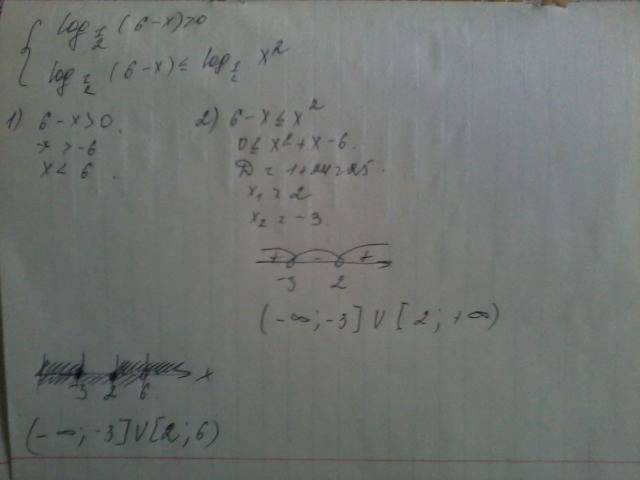 log π/2 (6-x)>0
log π/2 (6-x) ≤ log π/2 x²
1) 6-x>0.
-x>-6
x<6.
2) 6-x≤x²
0≤x²+x-6.
D=1+24=25.
x₁=2
x₂=-3
+ - +
-3 2
(-∞;-3]∪[2;+∞)
-3 2 6 x
(-∞;-3]∪[2;6)